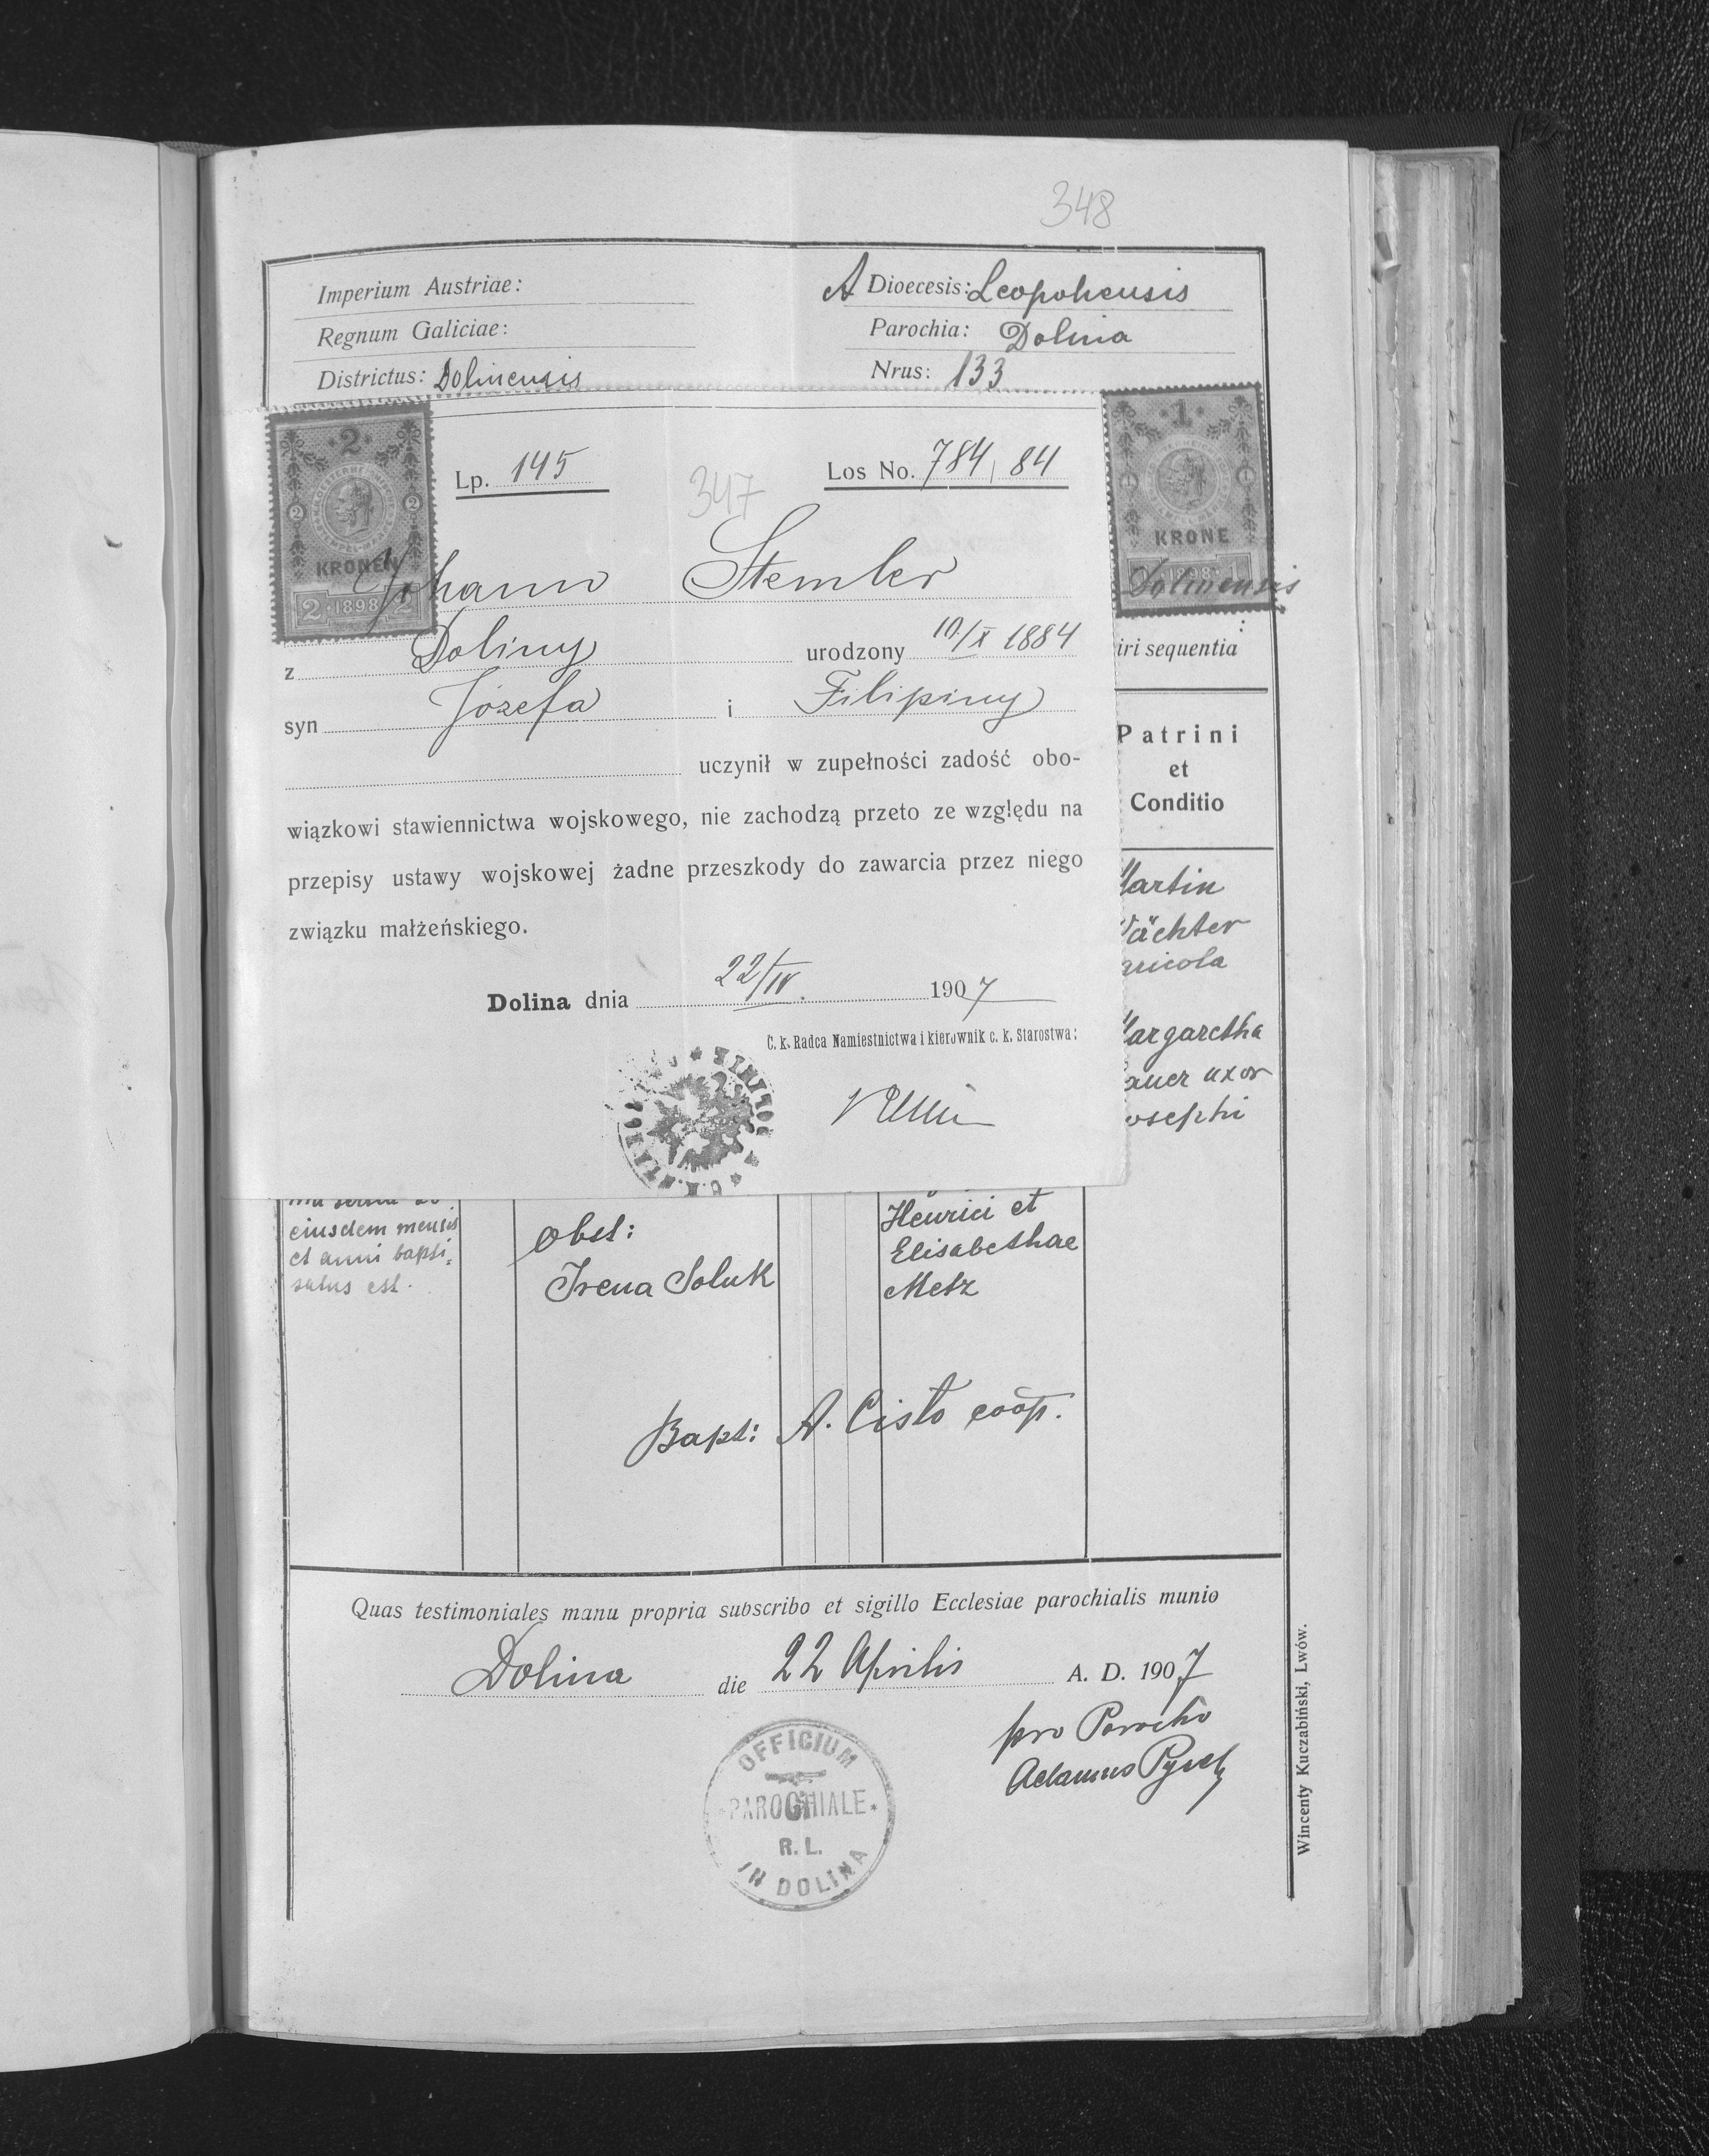 348
Imperium Austriae:
A Dioecesis: Leopoliensis
Regnum Galiciae:
Parochia: Dolina
Districtus: Dolinensis
Nrus: 133
2
KRONEN
2 · 1898 · 2
1
KRONE
1898
Dolinensis
Lp. 145
347
Los No. 784, 84
Johann Stemler
z Doliny urodzony 10/X 1884
syn Józefa i Filipiny
uczynił w zupełności zadość obo-
wiązkowi stawiennictwa wojskowego, nie zachodzą przeto ze względu na
przepisy ustawy wojskowej żadne przeszkody do zawarcia przez niego
związku małżeńskiego.
Dolina dnia 22/IV. 1907
C. k. Radca Namiestnictwa i kierownik c. k. Starostwa:
iri sequentia
Patrini
et
Conditio
Martin
ächter
gricola
Margaretha
auer uxor
osephi
eiusdem mensis
et anni bapti-
satus est.
obst:
Irena Soluk
Henrici et
Elisabethae
Metz
Bapt: A. Cisło coop.
Quas testimoniales manu propria subscribo et sigillo Ecclesiae parochialis munio
Dolina die 22 Aprilis A. D. 1907
pro Parocho
Adamus
OFFICIUM
PAROCHIALE
R. L.
IN DOLINA
Wincenty Kuczabiński, Lwów.